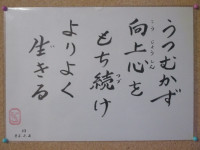 うつむかず
向上心を
もち続け
よりよく
生きる